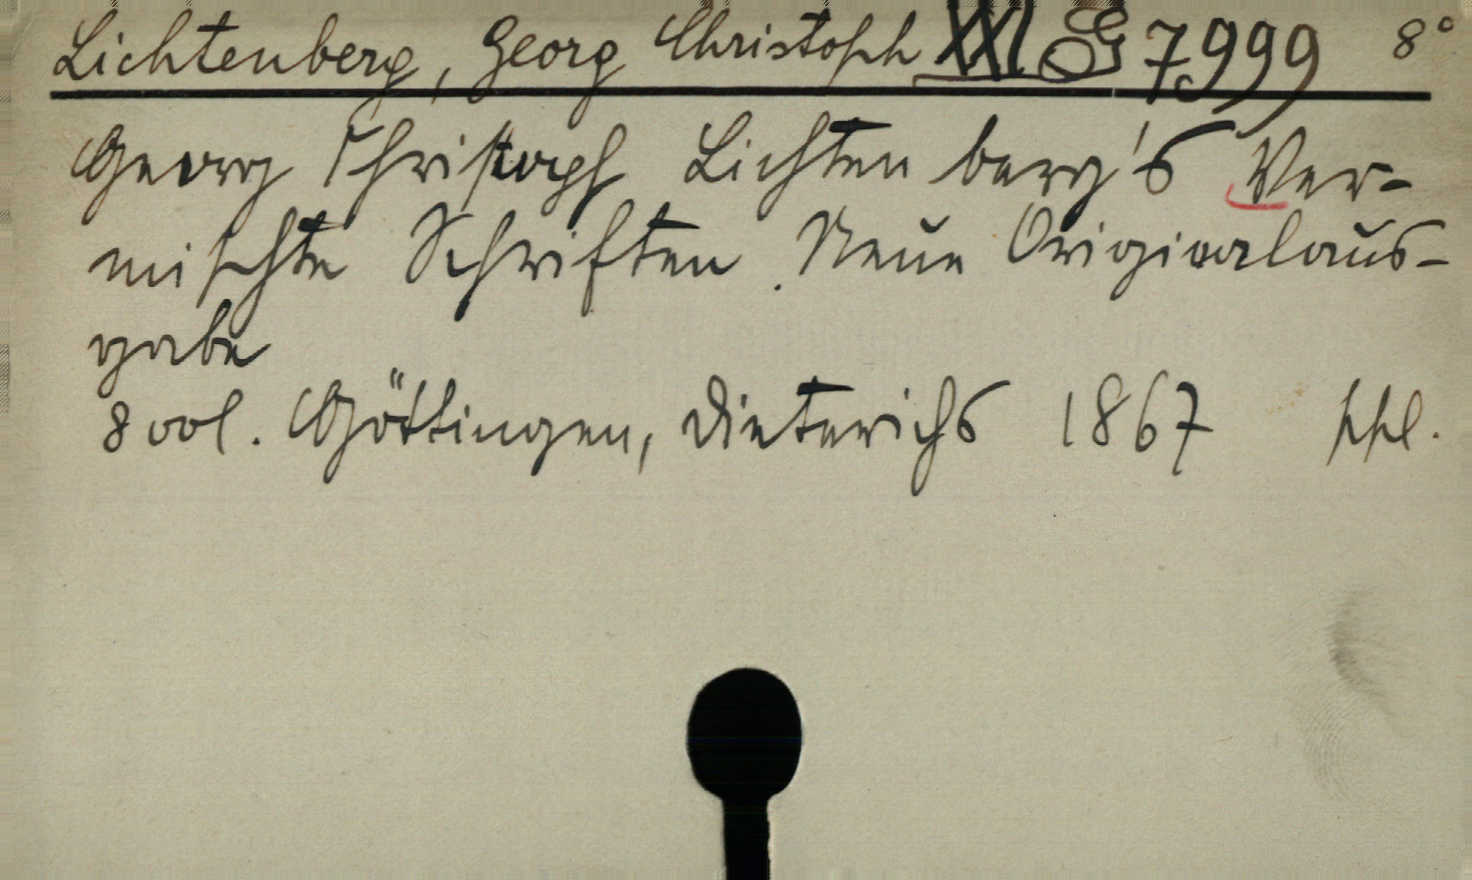 Lichtenberg, Georg Christoph XXI G 7999 8°
Georg Christoph Lichtenberg's Ver-
mischte Schriften. Neue Originalaus-
gabe
8 vol. Göttingen, Dieterichs 1867 ppl.